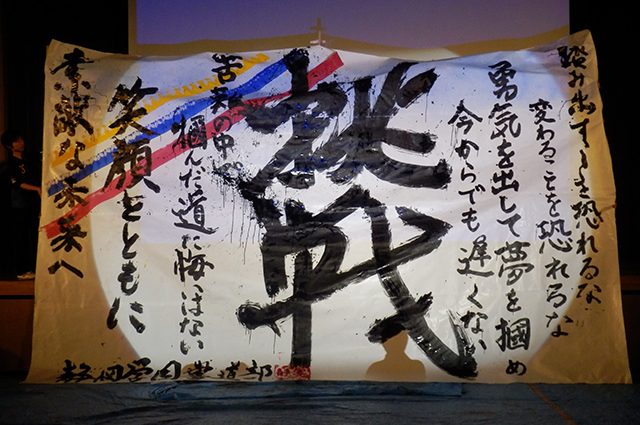 踏み出すことを恐れるな
変わることを恐れるな
勇気を出して夢を掴め
今からでも遅くない
挑戦
苦楽の中で
掴んだ道に悔いはない
笑顔とともに
素敵な未来へ